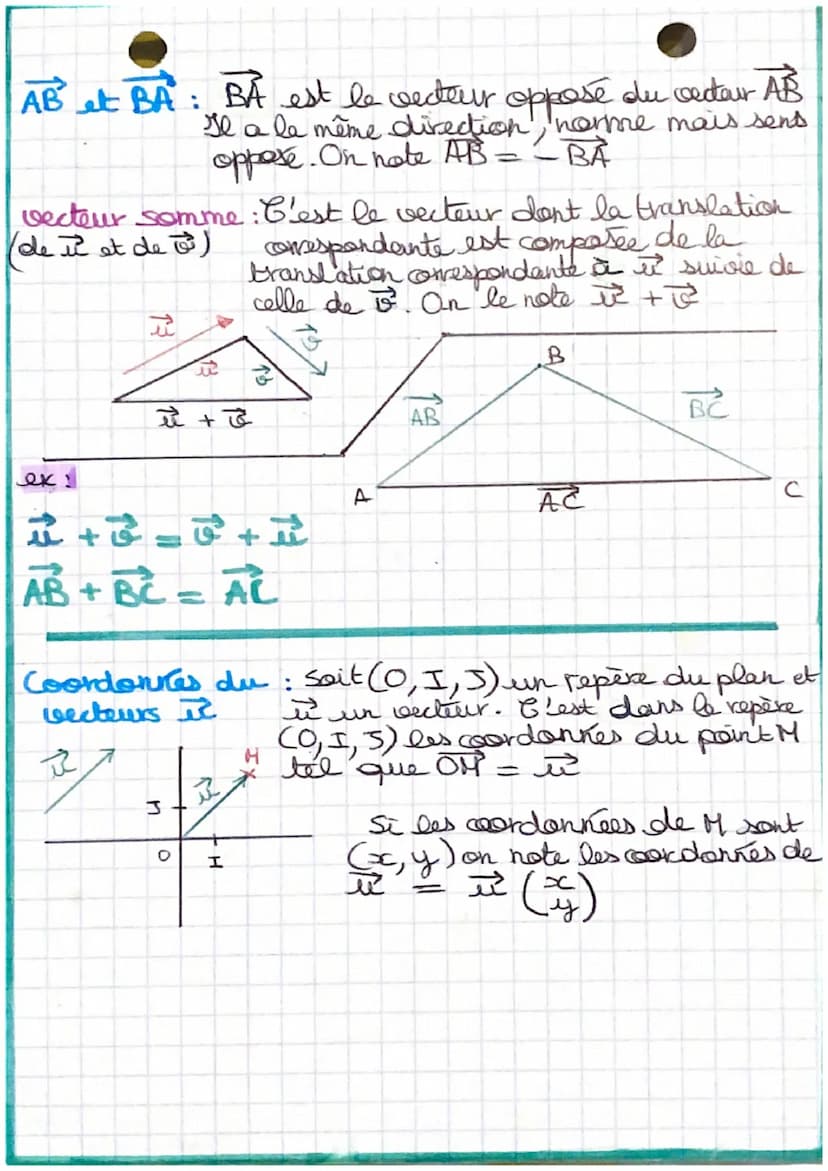 AB et BA : BA est le vecteur opposé du vecteur AB
Il a la même direction, norme mais sens
opposé. On note AB = - BA
vecteur somme : C'est le vecteur dont la translation
(de u et de v) correspondante est composée de la
translation correspondante à u suivie de
celle de v. On le note u + v
u
v
u
v
u + v
B
AB
BC
A
AC
C
ex :
u + v = v + u
AB + BC = AC
Coordonnées du : Soit (O, I, J) un repère du plan et
vecteurs u u un vecteur. C'est dans le repère
(O, I, J) les coordonnées du point M
tel que OM = u
u
M
u
J
O
I
Si les coordonnées de M sont
(x, y) on note les coordonnées de
u = u (x
y)